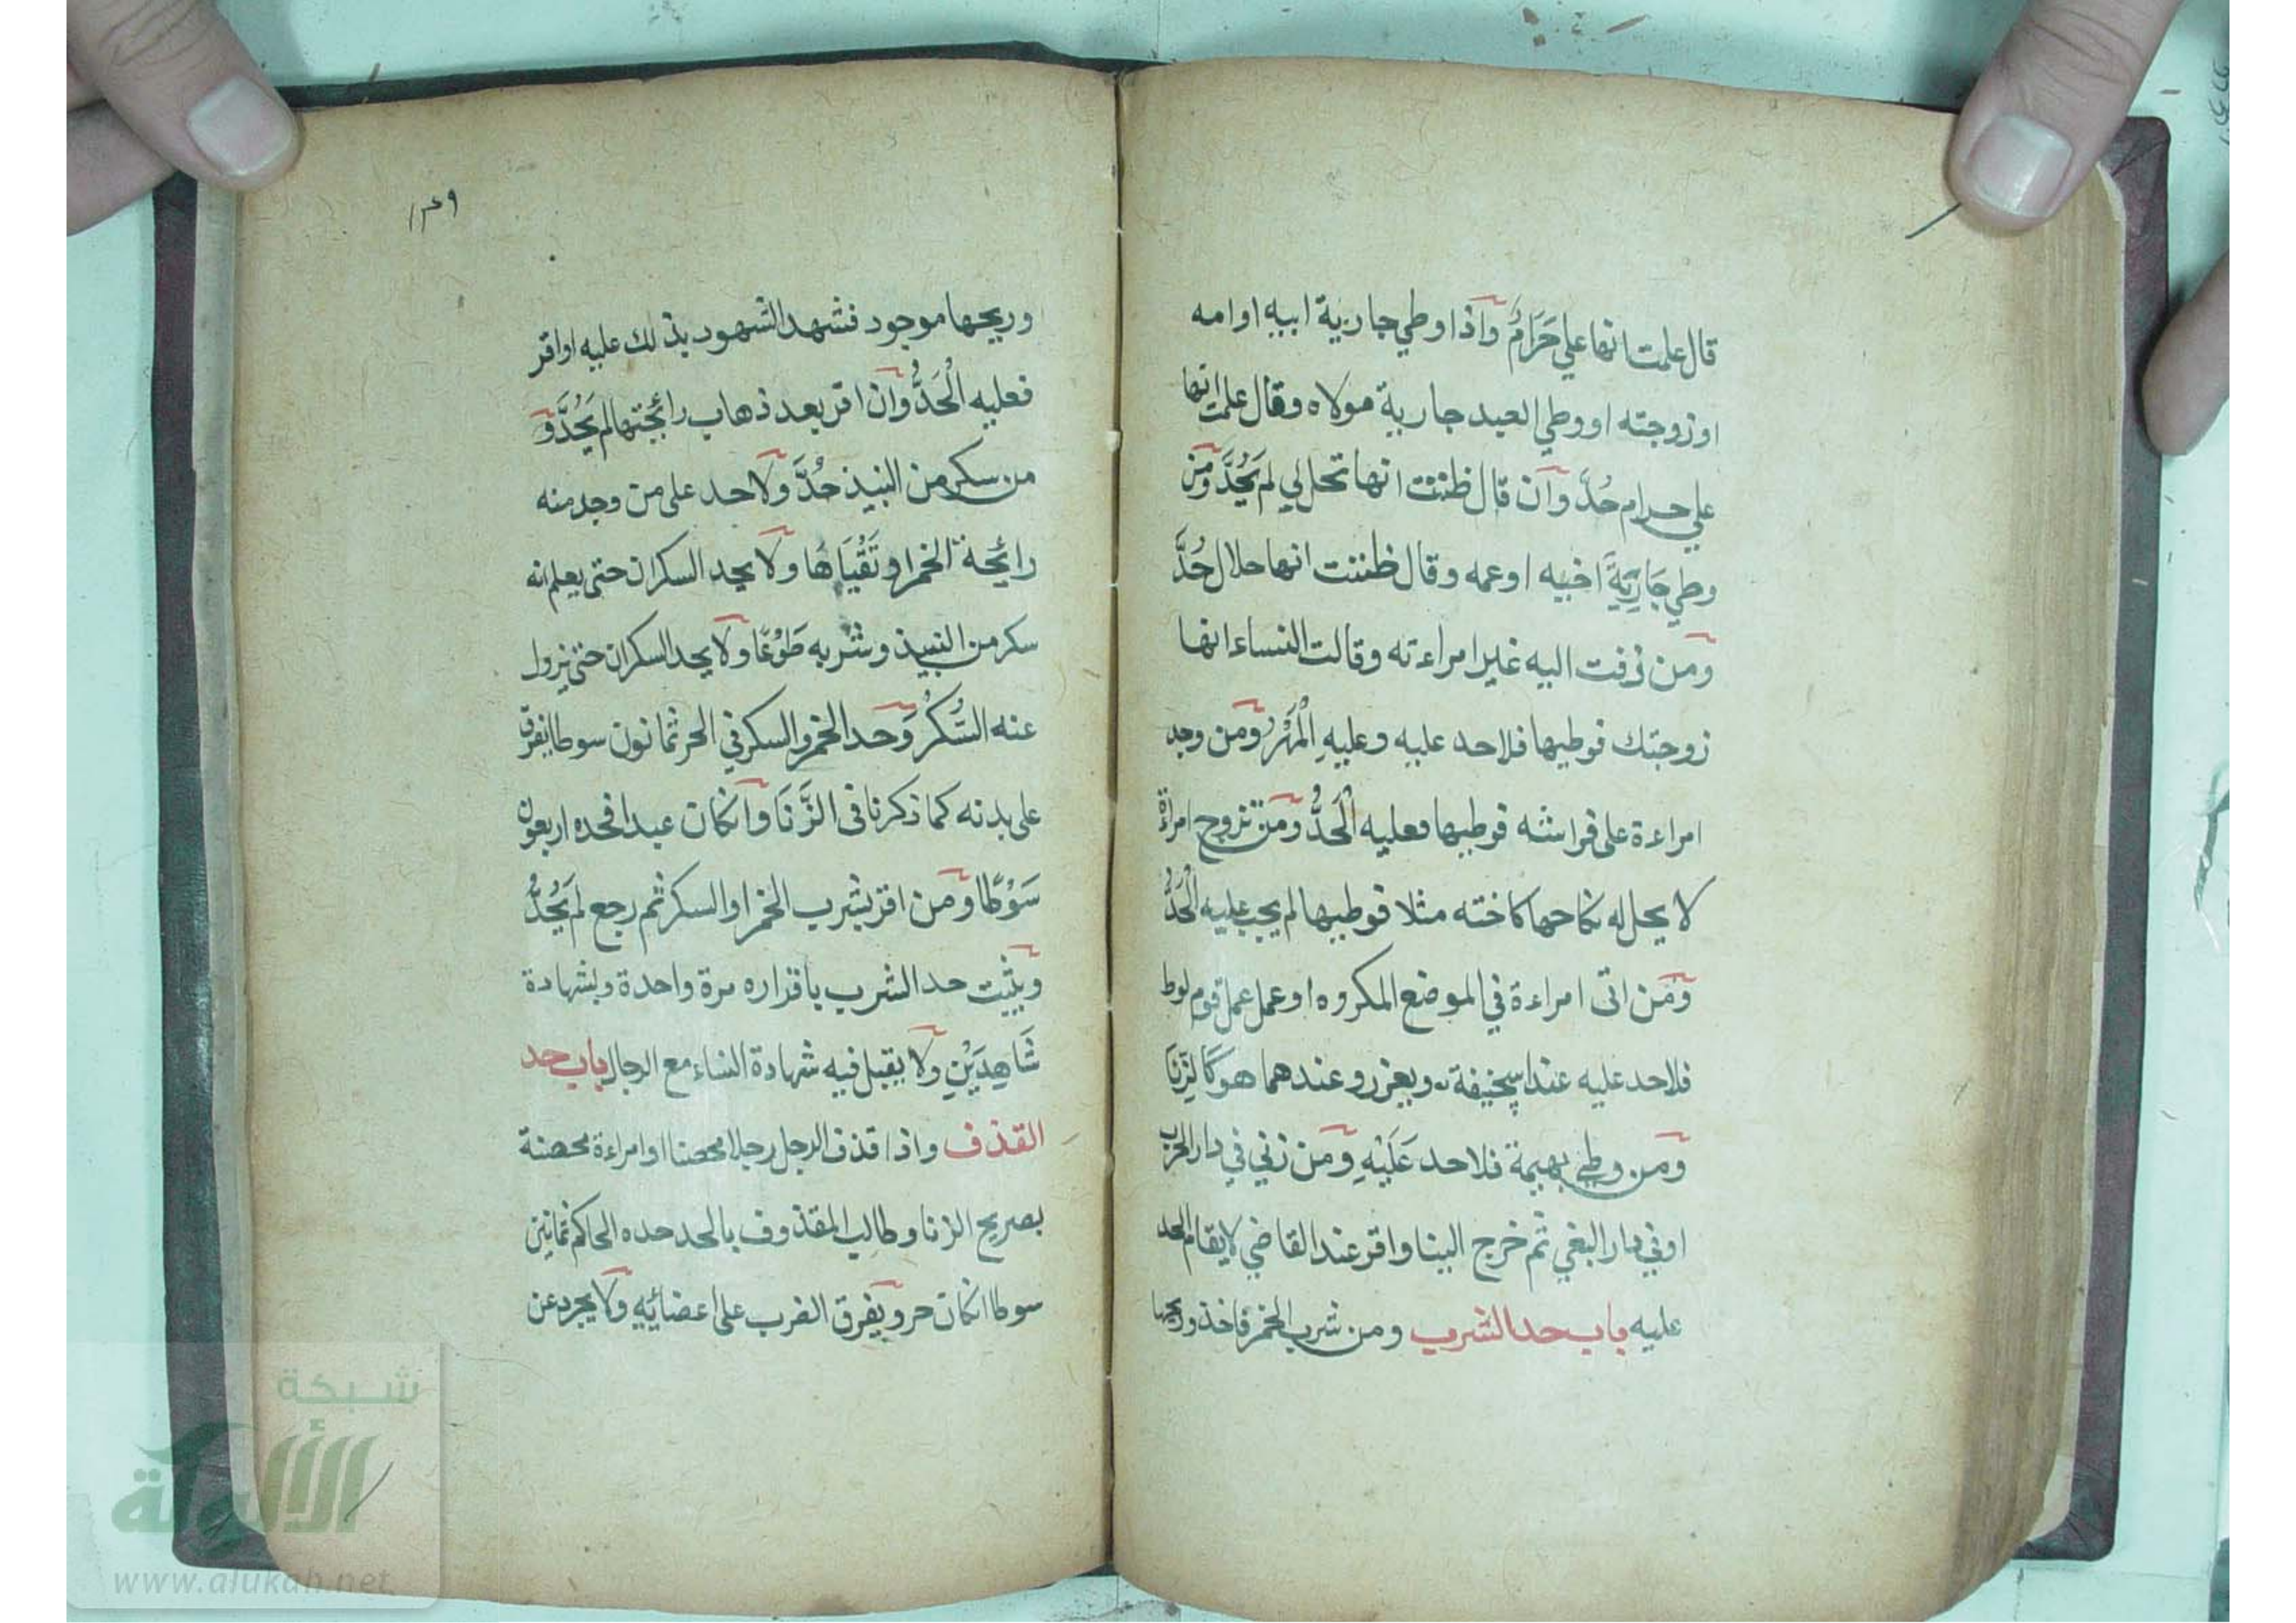 قال علمت انها علي حَرَامٌ واذا وطي جارية ابيه او امه
او زوجته او وطي العبد جارية مولاه وقال علمت انها
علي حرام حُدَّ وان قال ظننت انها تحل لي لم يُحَدَّ ومن
وطي جَارِيَةَ اخيه او عمه وقال ظننت انها حلال حُدَّ
ومن زفت اليه غير امراءته وقالت النساء انها
زوجتك فوطيها فلا حد عليه وعليهِ الْمَهْرُ ومن وجد
امراءة على فراشه فوطيها فعليه الْحَدُّ ومن تزوج امراة
لا يحل له نكاحها كاخته مثلا فوطيها لم يجب عليه الْحَدُّ
ومن اتى امراءة في الموضع المكروه او عمل عمل قوم لوط
فلا حد عليه عند ابيحنيفة ويعزر وعندهما هو كَالزِّنَا
ومن وطي بهيمة فلا حد عَلَيْهِ ومن زني في دار الحرب
او في دار البغي ثم خرج الينا واقر عند القاضي لا يقام الحد
عليه باب حد الشرب ومن شرب الخمر فاخذ وريحها
١٣٤٩
وريحها موجود فشهد الشهود بذلك عليه او اقر
فعليه الْحَدُّ وان اقر بعد ذهاب رائحتها لم يُحَدَّ و
من سكر من النبيذ حُدَّ ولا حد على من وجد منه
رائحة الخمر او تَقَيَّاَهَا ولا يحد السكران حتى يعلم انه
سكر من النبيذ وشربه طَوْعًا ولا يحد السكران حتى يزول
عنه السُّكْرُ وَحد الخمر والسكر في الحر ثمانون سوطا يفرق
على بدنه كما ذكرنا في الزِّنَا وان كان عبدا فحده اربعون
سَوْطًا ومن اقر بشرب الخمر او السكر ثم رجع لم يُحَدُّ
ويثبت حد الشرب باقراره مرة واحدة وبشهادة
شَاهِدَيْنِ ولا يقبل فيه شهادة النساء مع الرجال باب حد
القذف واذا قذف الرجل رجلا محصنا او امراءة محصنة
بصريح الزنا وطالب المقذوف بالحد حده الحاكم ثمانين
سوطا ان كان حر ويفرق الضرب على اعضائيه ولا يجرد عن
شبكة
الألوكة
www.alukah.net